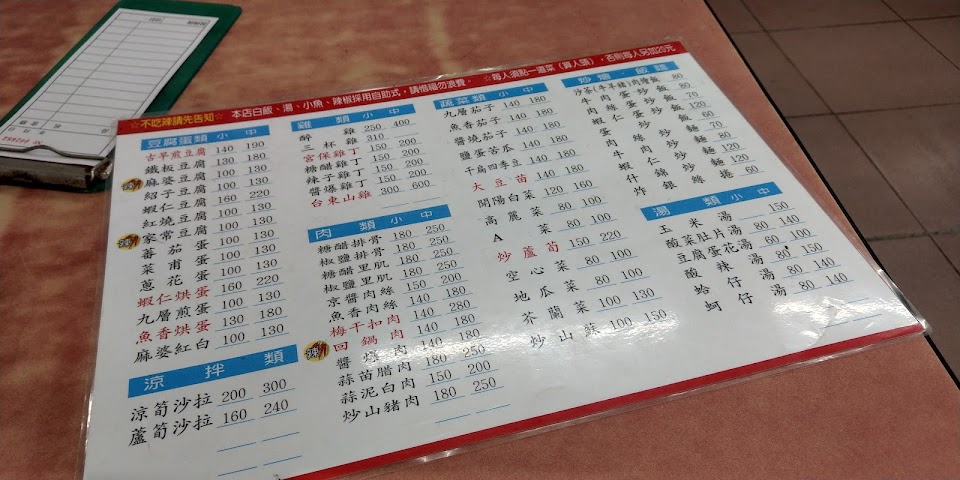 ☆不吃辣請先告知☆ 本店白飯、湯、小魚、辣椒採用自助式，請惜福勿浪費。 ☆每人須點一道菜(算人頭)，否則每人另加20元
豆腐蛋類 小 中
古早煎豆腐 140 190
鐵板豆腐 130 180
麻婆豆腐 100 130
紹子豆腐 100 130
蝦仁豆腐 160 220
紅燒豆腐 100 130
家常豆腐 100 130
番茄蛋 100 130
菜甫蛋 100 130
蔥花蛋 100 130
蝦仁烘蛋 160 220
九層煎蛋 100 130
魚香烘蛋 130 180
麻婆紅白 100 130
涼拌類
涼筍沙拉 200 300
蘆筍沙拉 160 240
雞類 小 中
醉雞 250 400
三杯雞 310
宮保雞丁 150 200
糖醋雞丁 150 200
辣子雞丁 150 200
醬爆雞丁 150 200
台東山雞 300 600
肉類 小 中
糖醋排骨 180 250
椒鹽排骨 180 250
糖醋里肌 180 250
椒鹽里肌 180 250
京醬肉絲 140 180
梅干扣肉 200 280
回鍋肉 140 180
醬爆肉 140 180
蒜苗腊肉 180 250
蒜泥白肉 150 200
炒山豬肉 180 250
蔬菜類 小 中
九層茄子 140 180
魚香茄子 140 180
醬燒茄子 140 180
鹽蛋苦瓜 140 180
干扁四季豆 140 180
大豆苗 140 180
開陽白菜 120 160
高麗菜 80 100
A菜 80 100
炒蘆筍 150 220
空心菜 80 100
地瓜菜 80 100
芥蘭菜 100 130
炒山蘇 100 150
炒燴・飯麵
沙茶(牛羊豬)肉燴飯 80
牛肉蛋炒飯 80
炸銀絲捲 60
湯類 小 中
玉米湯 150
酸菜肚片湯 80 140
豆腐蛋花湯 60 100
酸辣湯 80 150
蛤仔湯 80 140
蚵仔湯 80 140